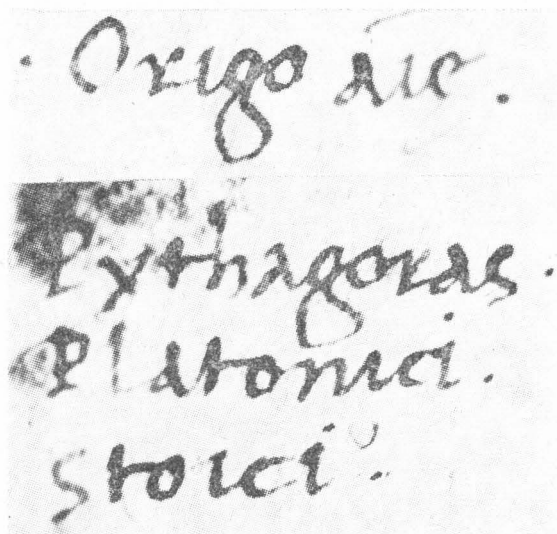 · Origo aīe .
Pythagoras .
Platonici .
Stoici .